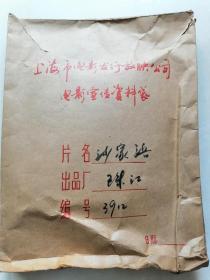 上海市电影发行放映公司
电影宣传资料袋
片名 沙家浜
出品厂 珠江
编号 3912